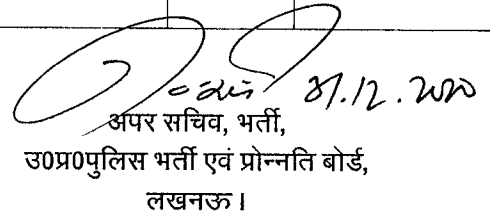 31.12.2020
अपर सचिव, भर्ती,
उ0प्र0पुलिस भर्ती एवं प्रोन्नति बोर्ड,
लखनऊ।